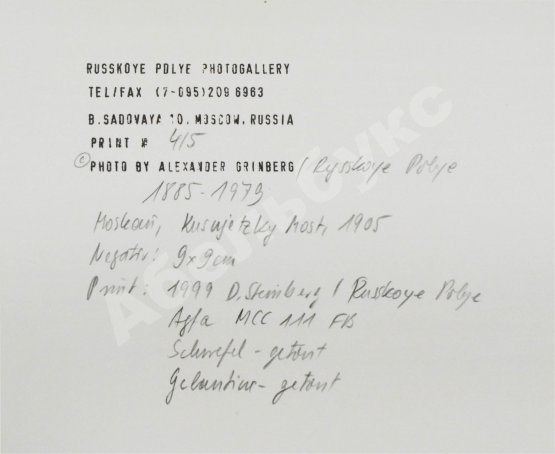 RUSSKOYE POLYE PHOTOGALLERY
TEL/FAX (7-095)209 6963
B.SADOVAYA 10, MOSCOW, RUSSIA
PRINT № 4/5
© PHOTO BY ALEXANDER GRINBERG / Rysskoye Polye
1885-1979
Moskau, Kusnjetzky Most, 1905
Negativ: 9x9cm
Print: 1999 D. Steinberg / Russkoye Polye
Agfa MCC 111 FB
Schwefel - getönt
Gelantine - getönt
Абельбукс